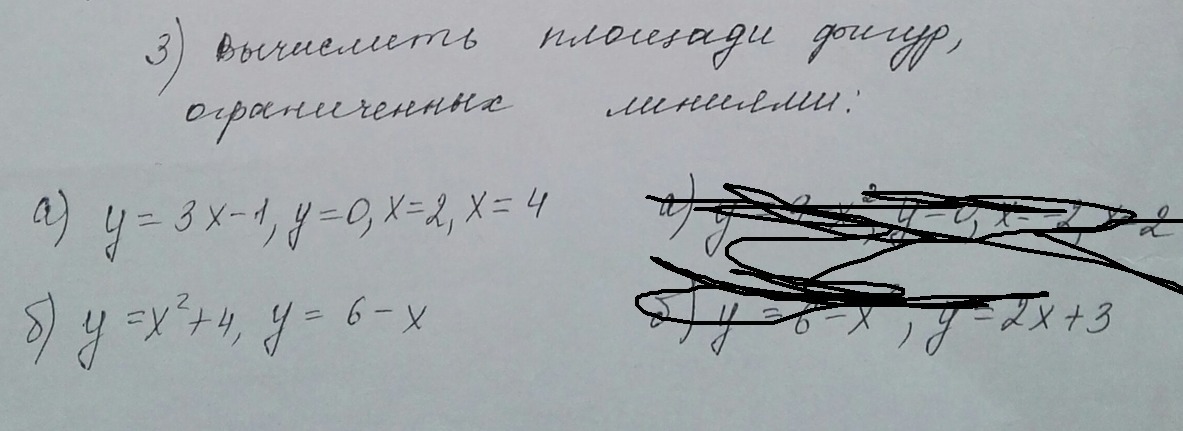 3) Вычислить площади фигур,
ограниченных линиями:
а) y = 3x-1, y=0, x=2, x=4
б) y = x²+4, y = 6-x
y = 2x+3